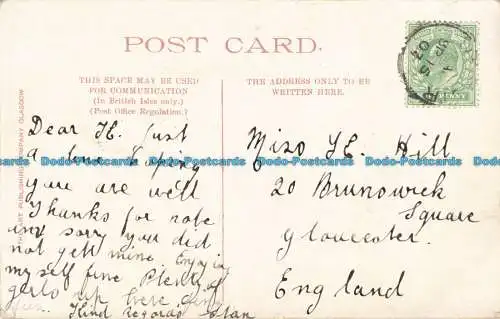 POST CARD.
THIS SPACE MAY BE USED
FOR COMMUNICATION
(In British Isles only.)
(Post Office Regulation.)
THE ADDRESS ONLY TO BE
WRITTEN HERE.
Dear H. Just
a line hoping
you are well
Thanks for note
and sorry you did
not gett mine Enjoying
myself fine Plenty of
gerls up here
Kind Regards Stan
Miss H. Hill
20 Brunswick
Square
Gloucester.
England
THE ART PUBLISHING COMPANY GLASGOW
Bdu-Postcards Bdu-Postcards Bdu-Postcards Bdu-Postcards